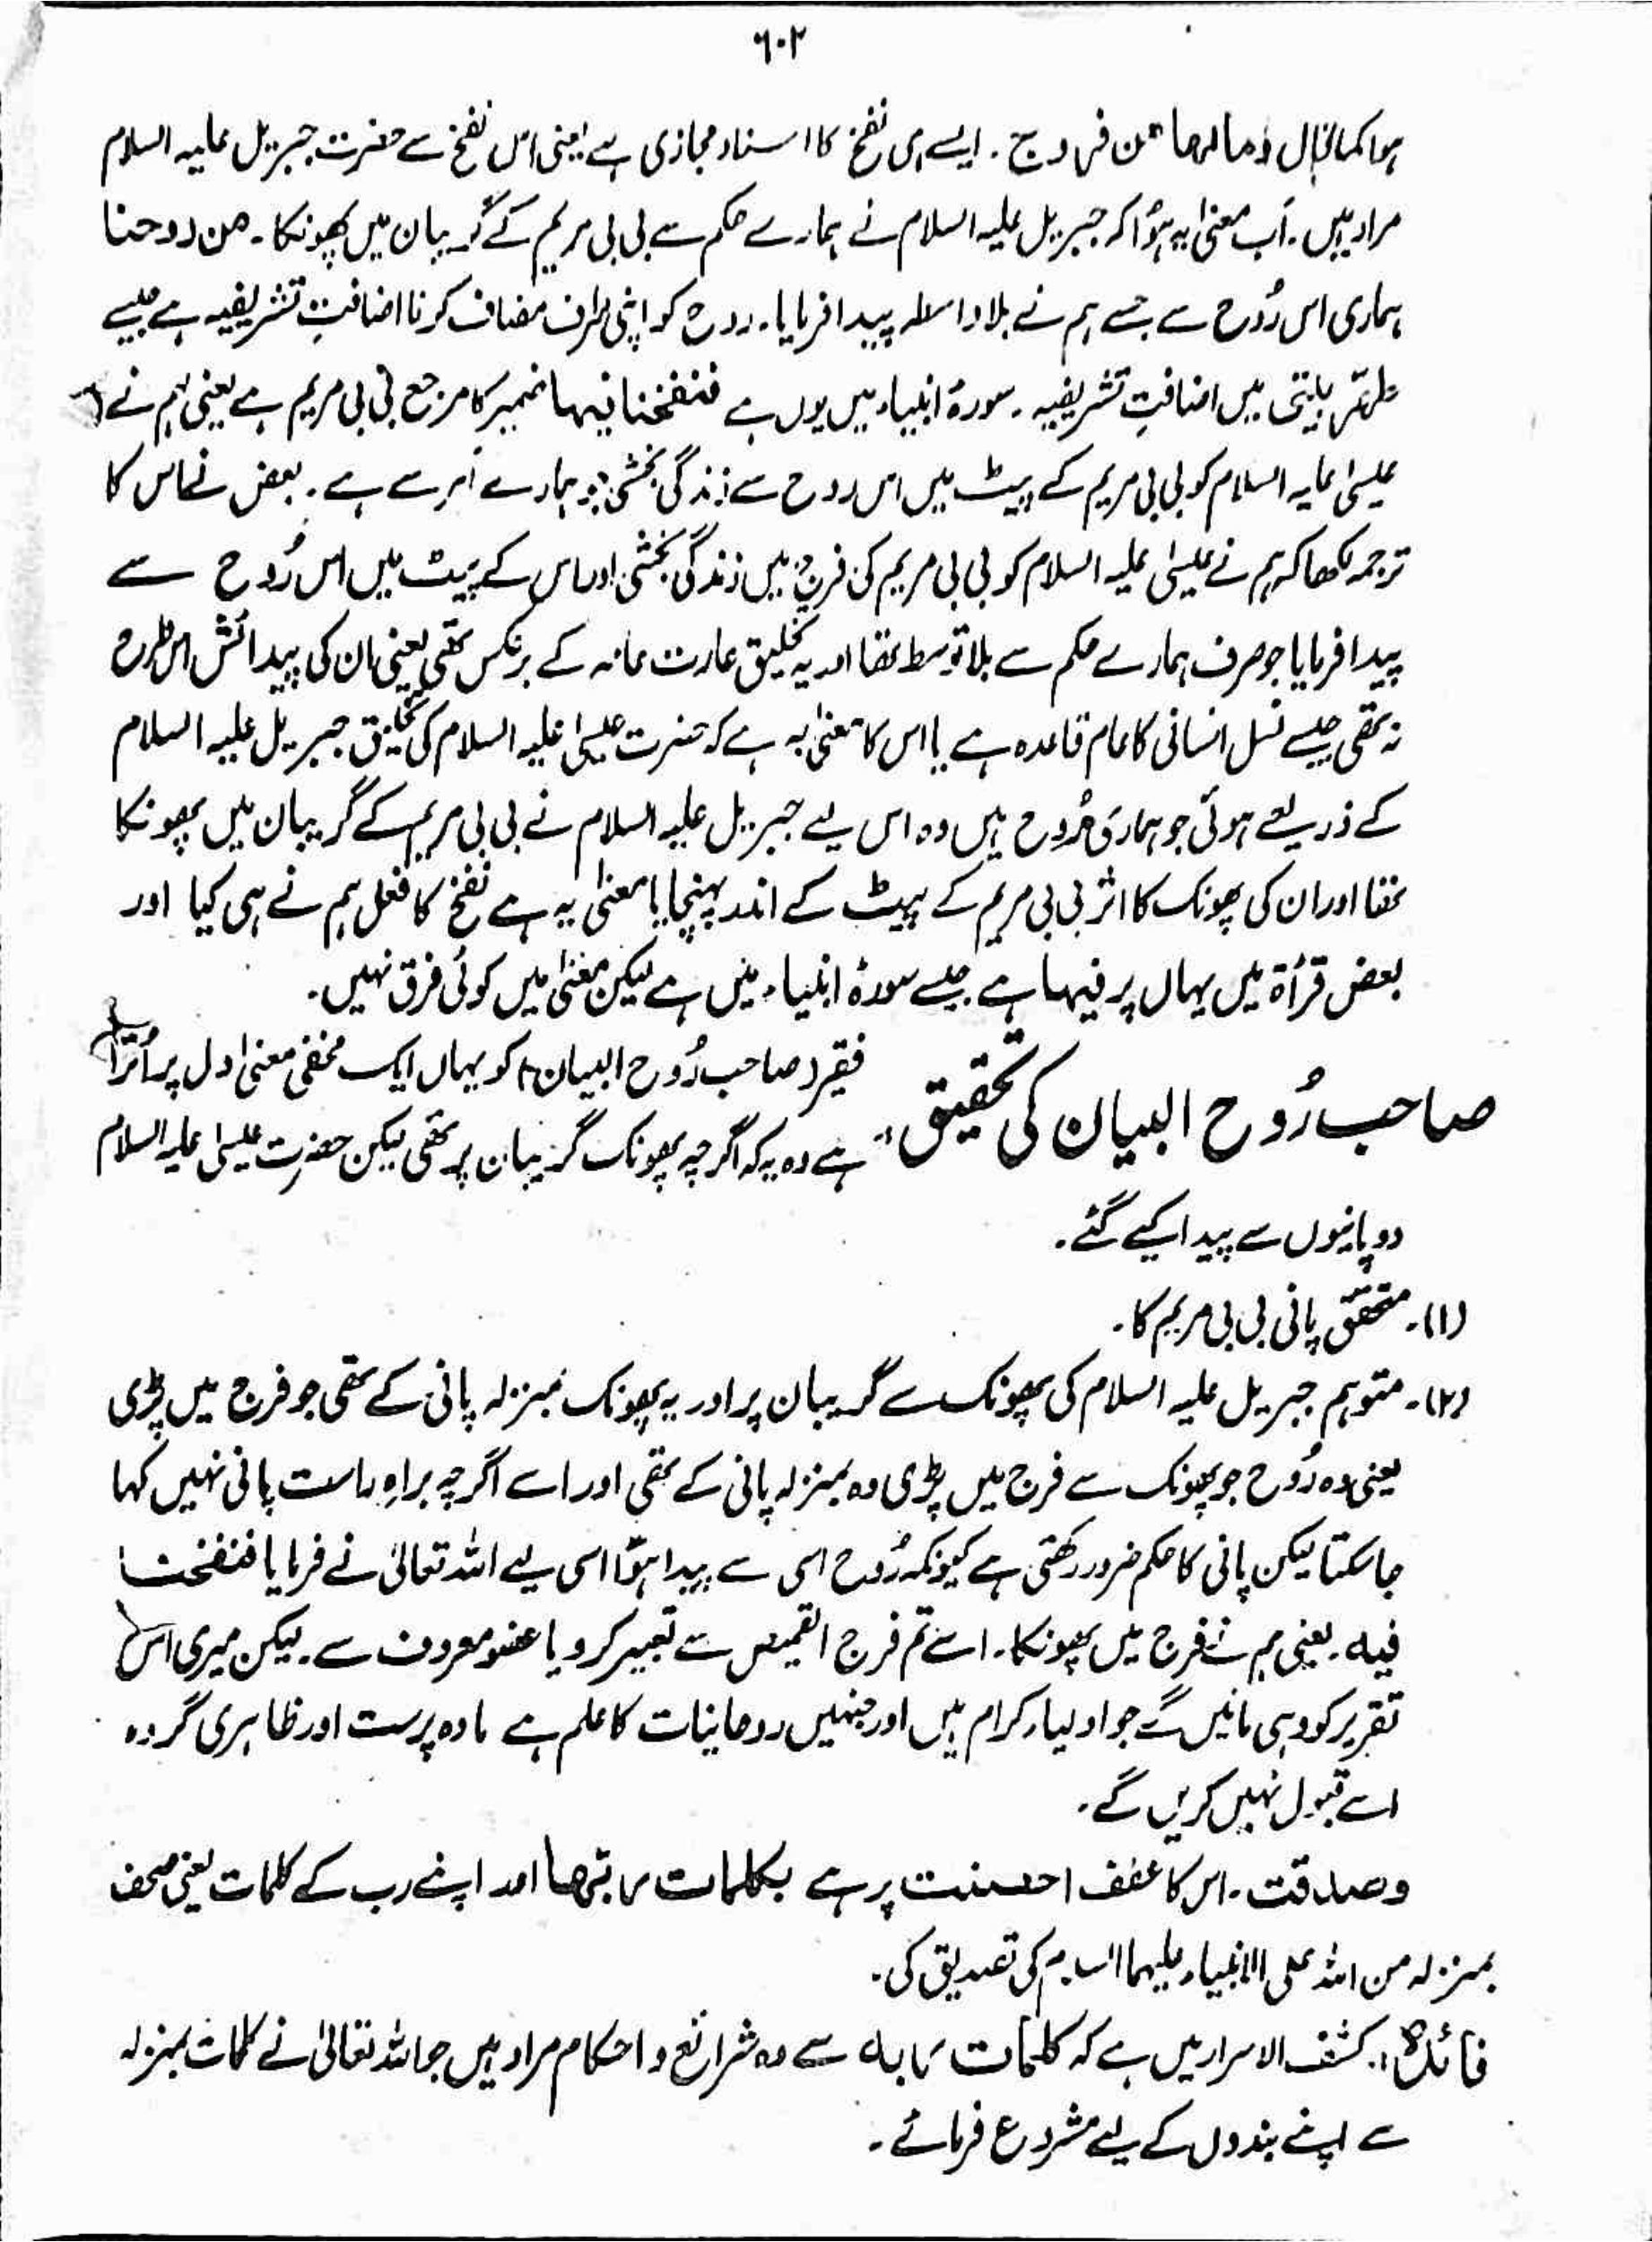 ٦٠٢
ہوا کما قال وما لہا من فروج ۔ ایسے ہی نفخ کا اسناد مجازی ہے یعنی اس نفخ سے حضرت جبریل علیہ السلام
مراد ہیں ۔ اب معنیٰ یہ ہوُا کہ جبریل علیہ السلام نے ہمارے حکم سے بی بی مریم کے گریبان میں پھونکا ۔ من روحنا
ہماری اس رُوح سے جسے ہم نے بلا واسطہ پیدا فرمایا ۔ روح کو اپنی طرف مضاف کرنا اضافتِ تشریفیہ ہے جیسے
طہّر بیتی میں اضافتِ تشریفیہ ۔ سورۂ انبیاء میں یوں ہے فنفخنا فیہا ضمیر کا مرجع بی بی مریم ہے یعنی ہم نے
عیسیٰ علیہ السلام کو بی بی مریم کے پیٹ میں اس روح سے زندگی بخشی جو ہمارے امر سے ہے ۔ بعض نے اس کا
ترجمہ لکھا کہ ہم نے عیسیٰ علیہ السلام کو بی بی مریم کی فرج میں زندگی بخشی اور اس کے پیٹ میں اس رُوح سے
پیدا فرمایا جو صرف ہمارے حکم سے بلا توسط تھا اور یہ تخلیق عادت عامہ کے برعکس تھی یعنی ان کی پیدائش اس طرح
نہ تھی جیسے نسل انسانی کا عام قاعدہ ہے یا اس کا معنیٰ یہ ہے کہ حضرت عیسیٰ علیہ السلام کی تخلیق جبریل علیہ السلام
کے ذریعے ہوئی جو ہماری رُوح ہیں وہ اس لیے جبریل علیہ السلام نے بی بی مریم کے گریبان میں پھونکا
تھا اور ان کی پھونک کا اثر بی بی مریم کے پیٹ کے اندر پہنچا یا معنیٰ یہ ہے نفخ کا فعل ہم نے ہی کیا اور
بعض قرأۃ میں یہاں پر فیہا ہے جیسے سورۂ انبیاء میں ہے لیکن معنیٰ میں کوئی فرق نہیں ۔
صاحب رُوح البیان کی تحقیق :۔ فقیر (صاحب رُوح البیان) کو یہاں ایک مخفی معنیٰ دل پر اُترا
ہے وہ یہ کہ اگرچہ پھونک گریبان پر تھی لیکن حضرت عیسیٰ علیہ السلام
دو پانیوں سے پیدا کیے گئے ۔
(۱)۔ متحقق پانی بی بی مریم کا ۔
(۲)۔ متوہم جبریل علیہ السلام کی پھونک سے گریبان پر اور یہ پھونک بمنزلہ پانی کے تھی جو فرج میں پڑی
یعنی وہ رُوح جو پھونک سے فرج میں پڑی وہ بمنزلہ پانی کے تھی اور اسے اگرچہ براہِ راست پانی نہیں کہا
جا سکتا لیکن پانی کا حکم ضرور رکھتی ہے کیونکہ رُوح اسی سے پیدا ہوُا اسی لیے اللہ تعالیٰ نے فرمایا فنفخنا
فیہ ۔ یعنی ہم نے فرج میں پھونکا ۔ اسے تم فرج القمیص سے تعبیر کرو یا عضو معروف سے ۔ لیکن میری اس
تقریر کو وہی مانیں گے جو اولیاء کرام ہیں اور جنہیں روحانیات کا علم ہے مادہ پرست اور ظاہری گروہ
اسے قبول نہیں کریں گے ۔
وصدقت ۔ اس کا عطف احصنت پر ہے بکلمات ربھا اور اپنے رب کے کلمات یعنی صحف
بمنزلہ من اللہ علی الانبیاء علیہما السلام کی تصدیق کی ۔
فائدہ :۔ کشف الاسرار میں ہے کہ کلمات ربہ سے وہ شرائع و احکام مراد ہیں جو اللہ تعالیٰ نے کلمات بمنزلہ
سے اپنے بندوں کے لیے مشروع فرمائے ۔